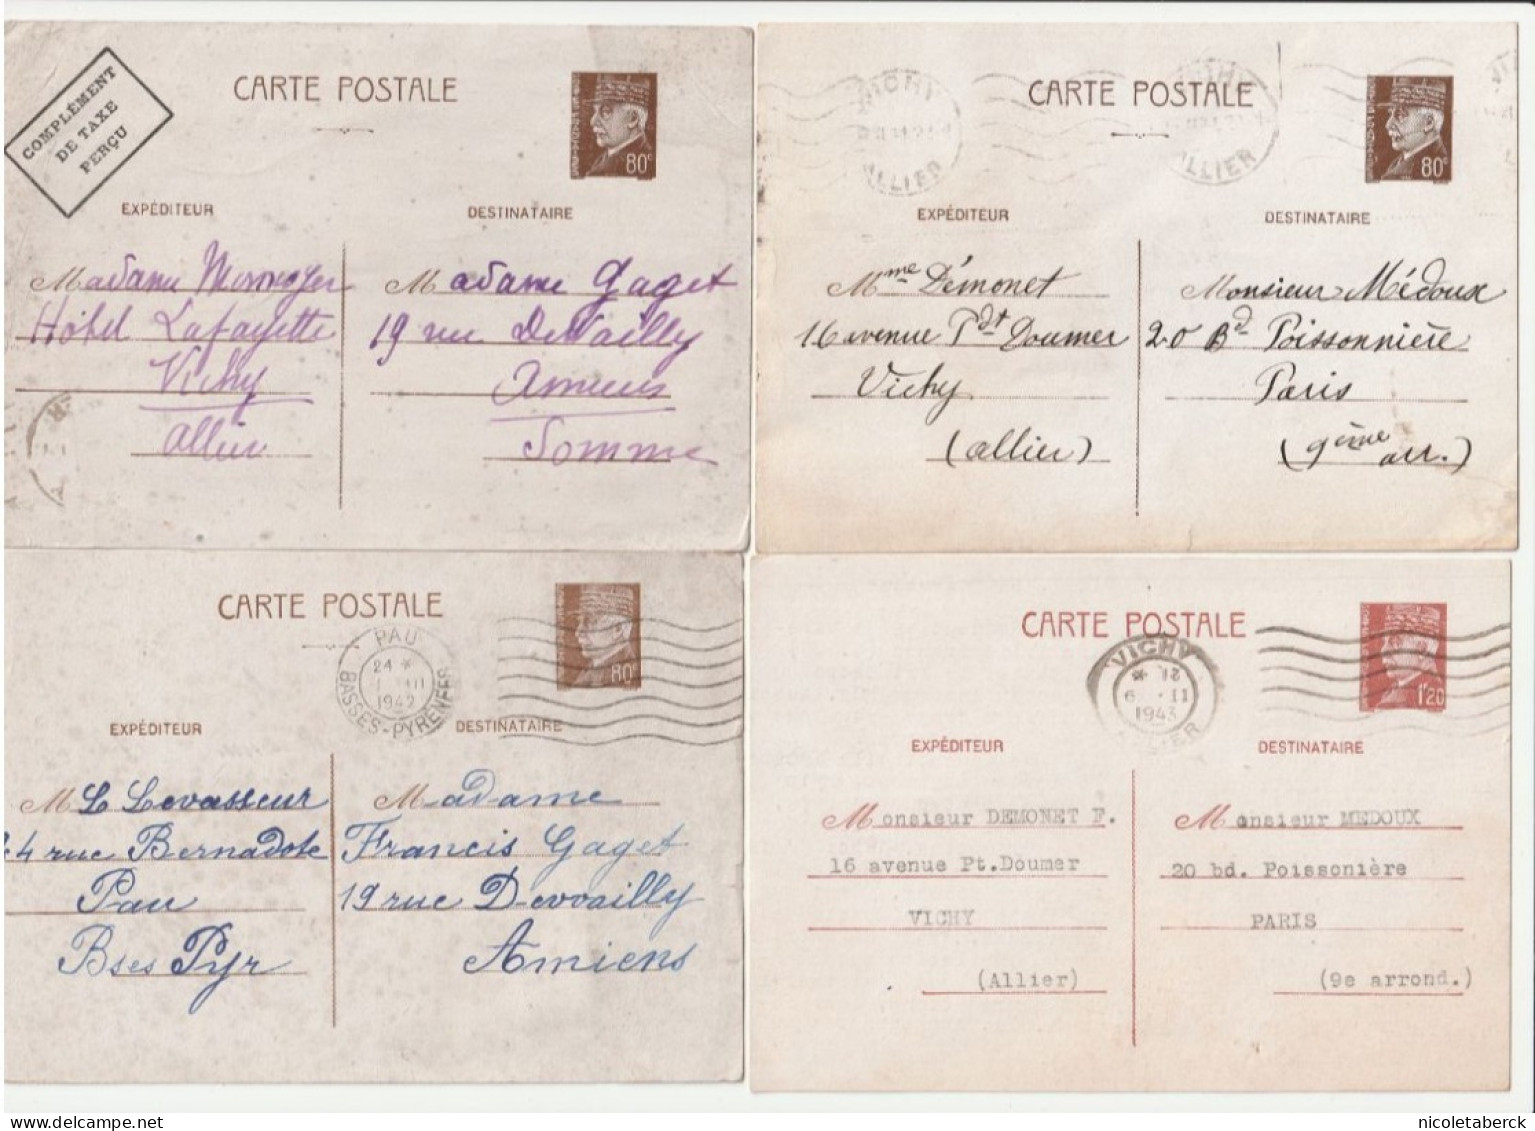 COMPLÉMENT
DE TAXE
PERÇU
CARTE POSTALE
80c
EXPÉDITEUR
DESTINATAIRE
Madame
Hôtel Lafayette
Vichy
allier
Madame Gaget
19 rue Devailly
Amiens
Somme
VICHY
ALLIER
CARTE POSTALE
80c
ALLIER
EXPÉDITEUR
DESTINATAIRE
Mme Démonet
16 avenue Pdt Doumer
Vichy
(allier)
Monsieur Médoux
20 Bd Poissonnière
Paris
(9ème arr.)
CARTE POSTALE
80c
PAU
24 *
1942
BASSES-PYRENEES
EXPÉDITEUR
DESTINATAIRE
M L Levasseur
24 rue Bernadote
Pau
Bses Pyr
Madame
Francis Gaget
19 rue Devvailly
Amiens
CARTE POSTALE
1f20
VICHY
21 *
9 II
1943
ALLIER
EXPÉDITEUR
DESTINATAIRE
Monsieur DEMONET F.
16 avenue Pt.Doumer
VICHY
(Allier)
Monsieur MEDOUX
20 bd. Poissonière
PARIS
(9e arrond.)
nicoletaberck